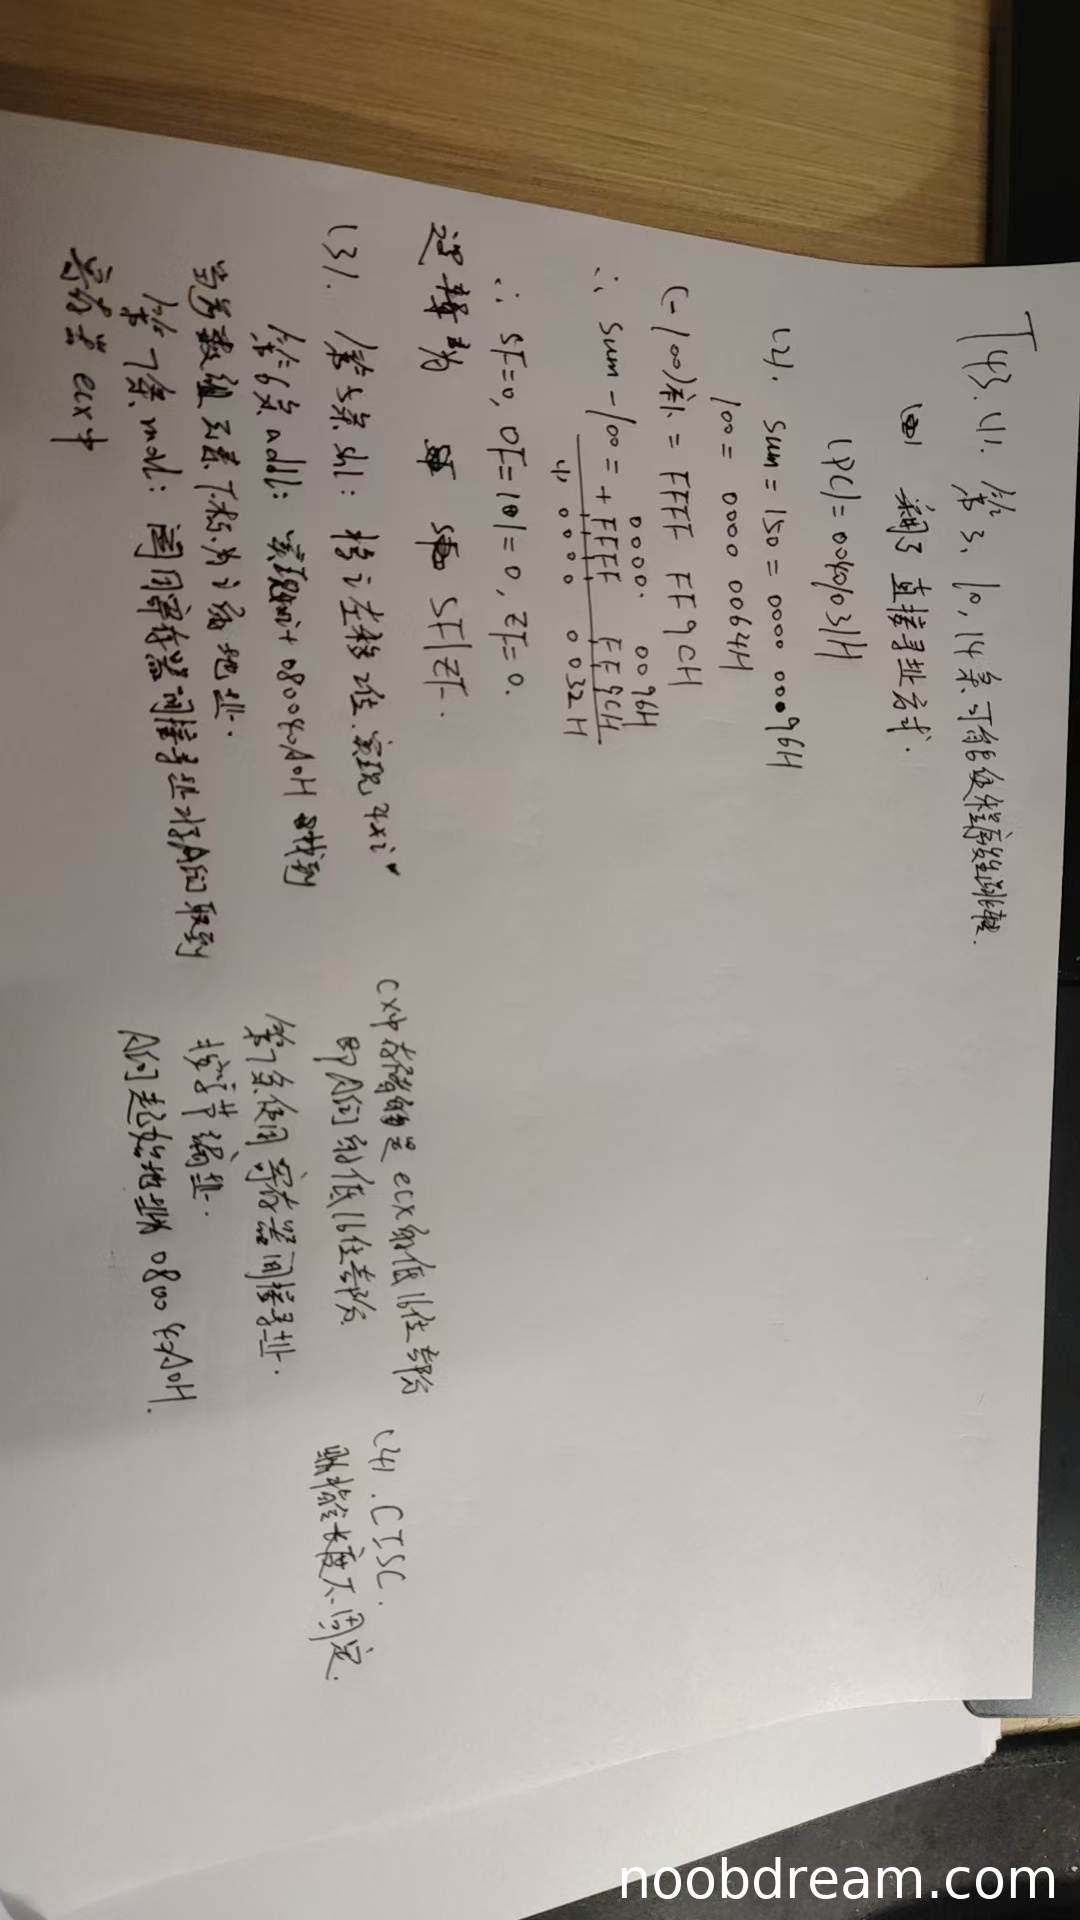 T43. (1). 第3、10, 14条可有能使程序发生跳转.
采用了直接寻址方式.
(PC)=00401031H
(2). sum=150=0000 0096H
100= 0000 0064H
(-100)补 = FFFF FF9CH
0000 0096H
∴ sum-100= + FFFF FF9CH
(1) 0000 0032H
∴ SF=0, OF=1⊕1=0, ZF=0.
逻辑为 SF|ZF.
(3). 第5条shl: 将i左移2位.实现4×i
第6条addl: 实现4i+080040A0H 找到
当前数组元素下标为i的地址.
第7条movl: 采用寄存器间接寻址将A[i]取到
寄存器ecx中
cx中存储的是ecx的低16位部分
即A[i]的低16位部分
第7条使用寄存器间接寻址.
按字节编址.
A[0]起始地址为080040A0H.
(4). CISC.
指令长度不固定.
noobdream.com